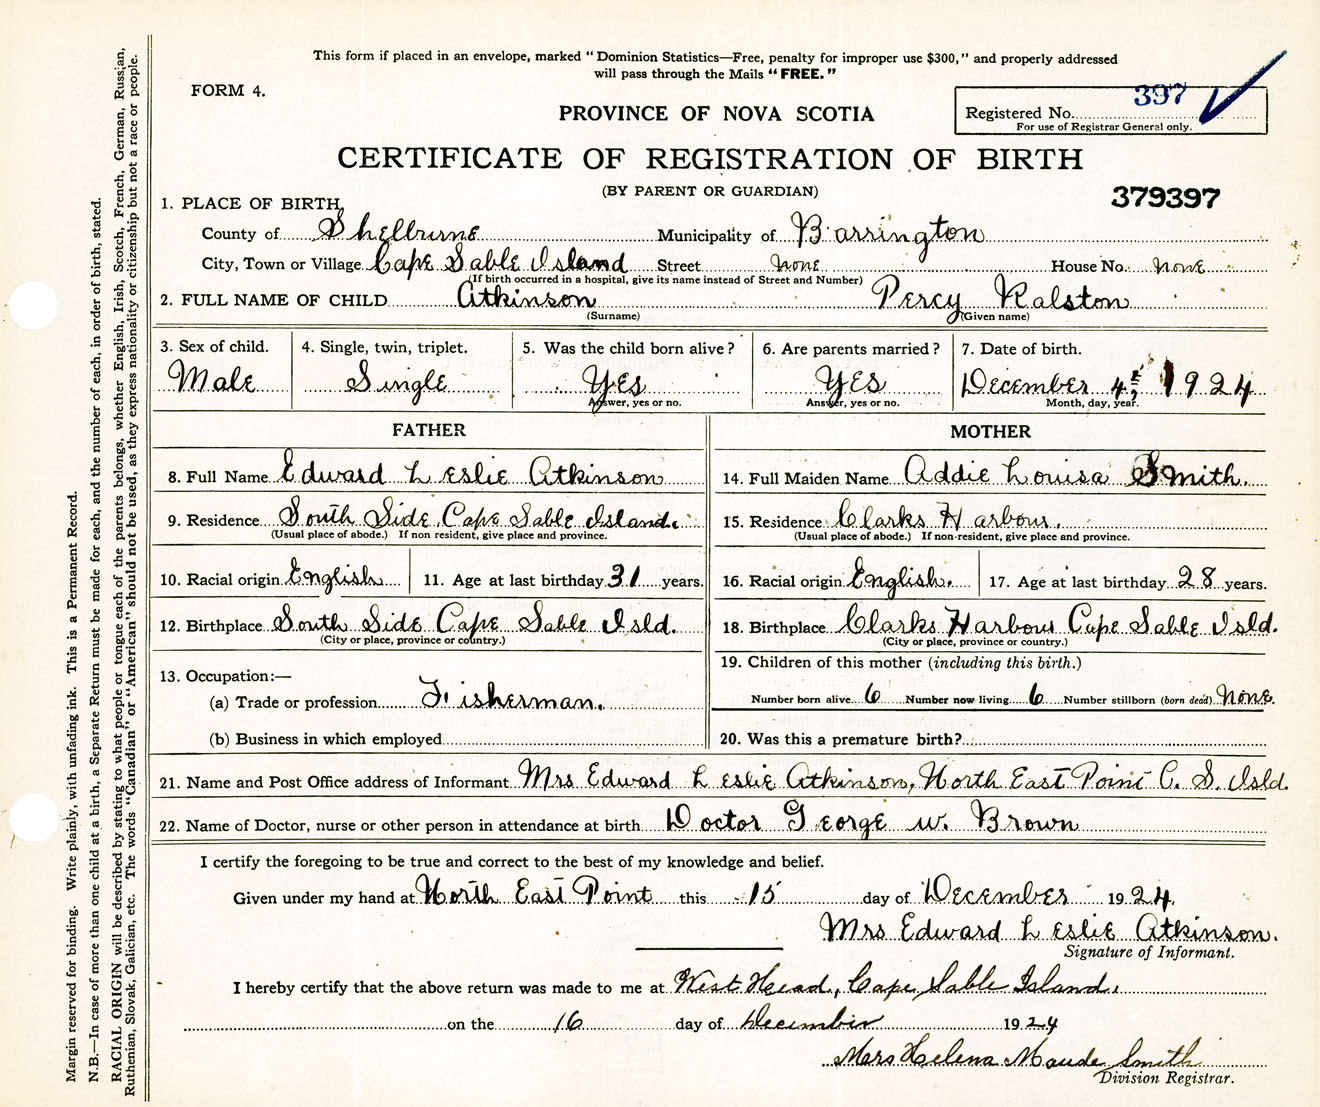 This form if placed in an envelope, marked "Dominion Statistics—Free, penalty for improper use $300," and properly addressed
will pass through the Mails "FREE."
FORM 4.
397
PROVINCE OF NOVA SCOTIA
Registered No.
For use of Registrar General only.
CERTIFICATE OF REGISTRATION OF BIRTH
(BY PARENT OR GUARDIAN)
379397
1. PLACE OF BIRTH
County of Shelburne Municipality of Barrington
City, Town or Village Cape Sable Island Street none House No. none
(If birth occurred in a hospital, give its name instead of Street and Number)
2. FULL NAME OF CHILD Atkinson Percy Ralston
(Surname) (Given name)
3. Sex of child. 4. Single, twin, triplet. 5. Was the child born alive? 6. Are parents married? 7. Date of birth.
Male Single Yes Yes December 4, 1924
Answer, yes or no. Answer, yes or no. Month, day, year.
FATHER MOTHER
8. Full Name Edward Leslie Atkinson 14. Full Maiden Name Addie Louisa Smith.
9. Residence South Side Cape Sable Island. 15. Residence Clarks Harbour.
(Usual place of abode.) If non resident, give place and province. (Usual place of abode.) If non-resident, give place and province.
10. Racial origin English 11. Age at last birthday 31 years. 16. Racial origin English. 17. Age at last birthday 28 years.
12. Birthplace South Side Cape Sable Isld. 18. Birthplace Clarks Harbour Cape Sable Isld.
(City or place, province or country.) (City or place, province or country.)
13. Occupation:— 19. Children of this mother (including this birth.)
(a) Trade or profession Fisherman. Number born alive 6 Number now living 6 Number stillborn (born dead) None.
(b) Business in which employed 20. Was this a premature birth?
21. Name and Post Office address of Informant Mrs Edward Leslie Atkinson, North East Point C. S. Isld.
22. Name of Doctor, nurse or other person in attendance at birth Doctor George W. Brown
I certify the foregoing to be true and correct to the best of my knowledge and belief.
Given under my hand at North East Point this 15 day of December 1924.
Mrs Edward Leslie Atkinson.
Signature of Informant.
I hereby certify that the above return was made to me at West Head, Cape Sable Island.
on the 16 day of December 1924
Mrs Helena Maude Smith
Division Registrar.
Margin reserved for binding. Write plainly, with unfading ink. This is a Permanent Record.
N.B.—In case of more than one child at a birth, a Separate Return must be made for each, and the number of each, in order of birth, stated.
RACIAL ORIGIN will be described by stating to what people or tongue each of the parents belongs, whether English, Irish, Scotch, French, German, Russian,
Ruthenian, Slovak, Galician, etc. The words "Canadian" or "American" should not be used, as they express nationality or citizenship but not a race or people.